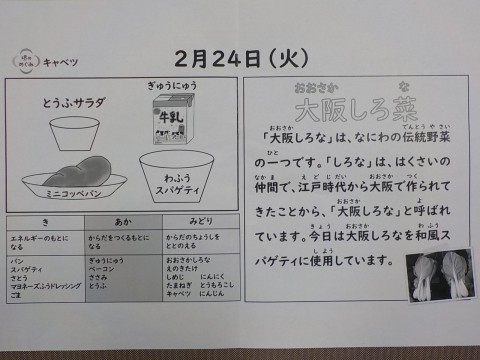 堺のめぐみ キャベツ
2月24日(火)
とうふサラダ
ぎゅうにゅう
牛乳
ミニコッペパン
わふう
スパゲティ
き あか みどり
エネルギーのもとになる からだをつくるもとになる からだのちょうしをととのえる
パン ぎゅうにゅう おおさかしろな
スパゲティ ベーコン えのきたけ
さとう ささみ しめじ にんにく
マヨネーズふうドレッシング とうふ たまねぎ とうもろこし
ごま キャベツ にんじん
おおさか な
大阪しろ菜
おおさか でんとう やさい
「大阪しろな」は、なにわの伝統野菜
ひと
の一つです。「しろな」は、はくさいの
なかま えどじだい おおさか つく
仲間で、江戸時代から大阪で作られて
おおさか よ
きたことから、「大阪しろな」と呼ばれ
きょう おおさか わふう
ています。今日は大阪しろなを和風ス
しよう
パゲティに使用しています。